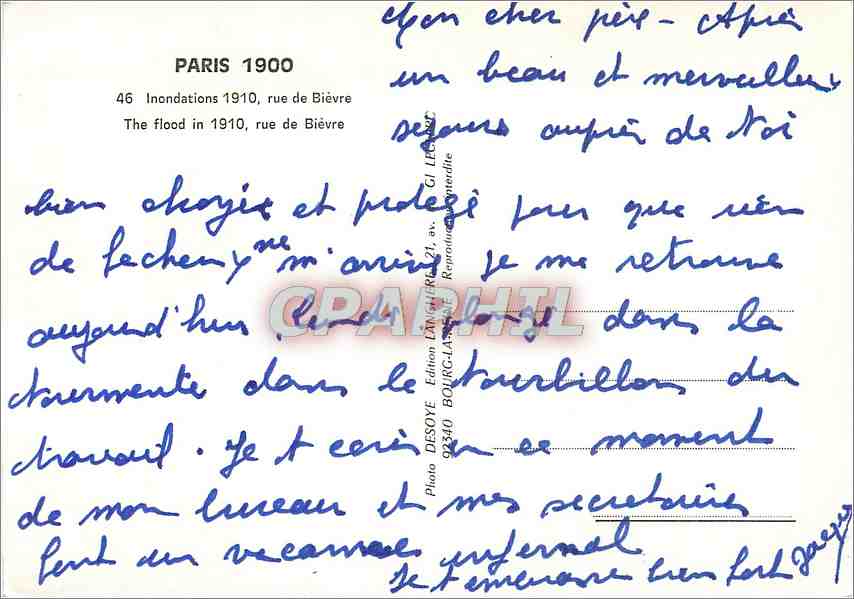 PARIS 1900
46 Inondations 1910, rue de Bièvre
The flood in 1910, rue de Bièvre
Mon cher père - Après
un beau et merveilleux
séjour auprès de toi
bien et protégé pour que rien
de facheux ne m'arrive je me retrouve
aujourd'hui lundi plongé dans la
tourmente dans le tourbillon du
travail. Je t'ecris en ce moment
de mon bureau et mes secretaires
font un vacarme infernal
Je t'embrasse bien fort
Photo DESOYE Edition 21, av. GI LECLERC
92340 BOURG-LA-REINE Reproduction interdite
CPAPHIL